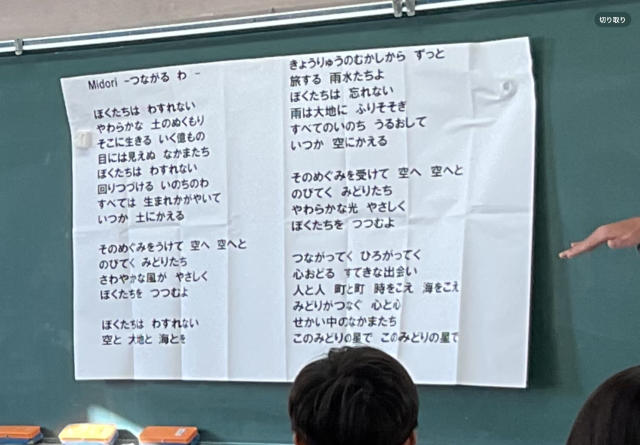 切り取り
Midori -つながる わ -
ぼくたちは わすれない
やわらかな 土のぬくもり
そこに生きる いく億もの
目には見えぬ なかまたち
ぼくたちは わすれない
回りつづける いのちのわ
すべては 生まれかがやいて
いつか 土にかえる
そのめぐみをうけて 空へ 空へと
のびてく みどりたち
さわやかな風が やさしく
ぼくたちを つつむよ
ぼくたちは わすれない
空と 大地と 海とを
きょうりゅうのむかしから ずっと
旅する 雨水たちよ
ぼくたちは 忘れない
雨は大地に ふりそそぎ
すべてのいのち うるおして
いつか 空にかえる
そのめぐみを受けて 空へ 空へと
のびてく みどりたち
やわらかな光 やさしく
ぼくたちを つつむよ
つながってく ひろがってく
心おどる すてきな出会い
人と人 町と町 時をこえ 海をこえ
みどりがつなぐ 心と心
せかい中のなかまたち
このみどりの星で このみどりの星で